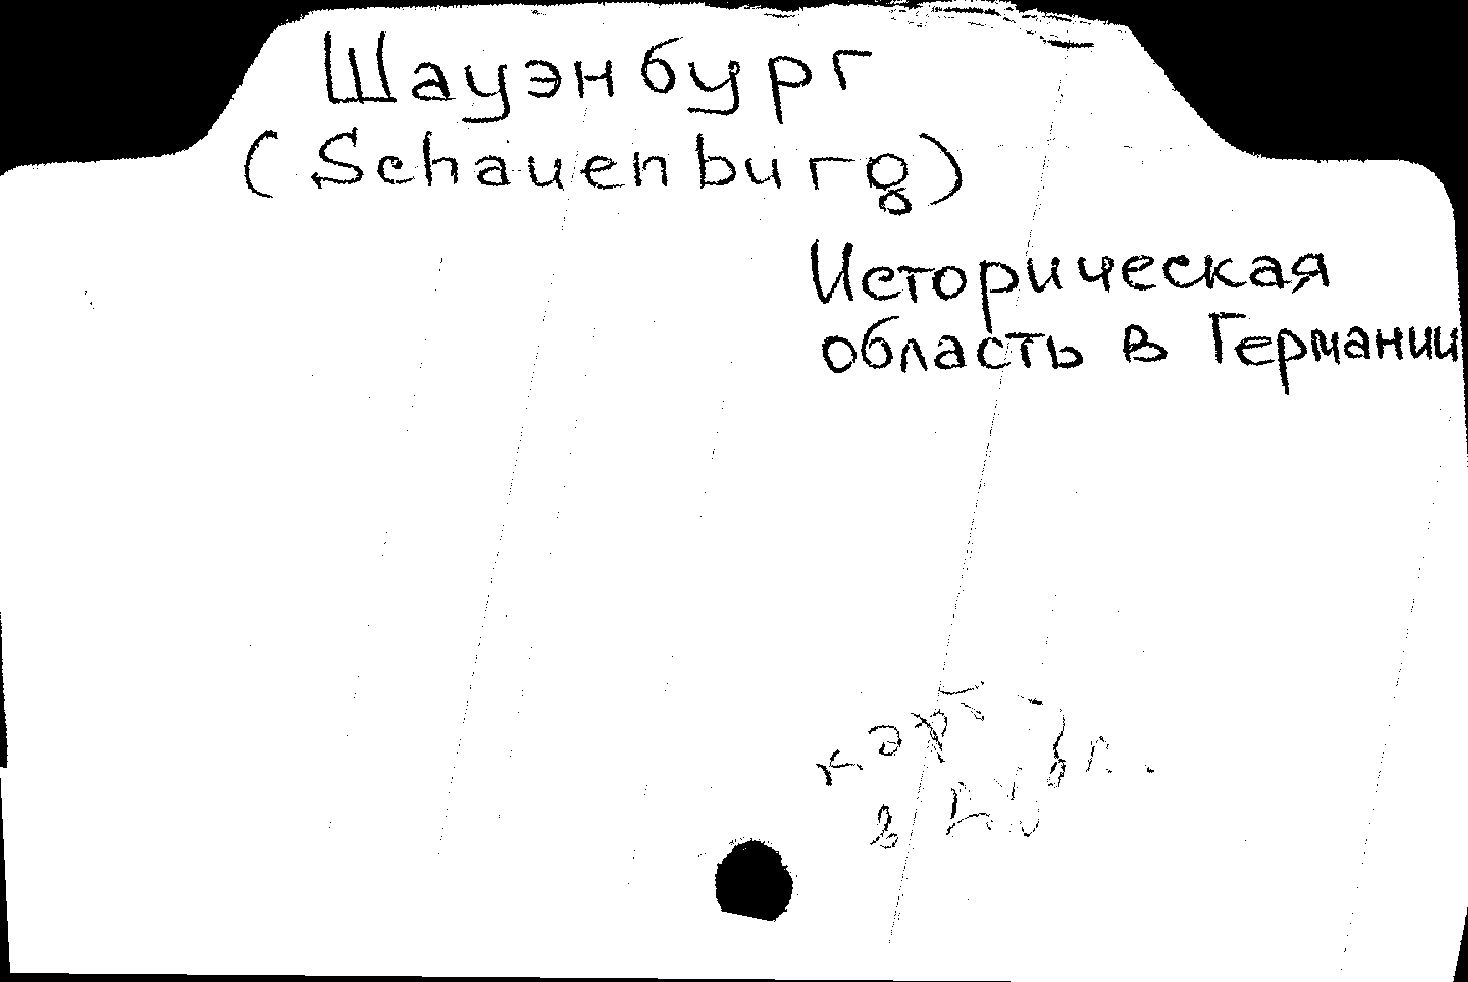 Шауэнбург
(Schauenburg)
Историческая
область в Германии